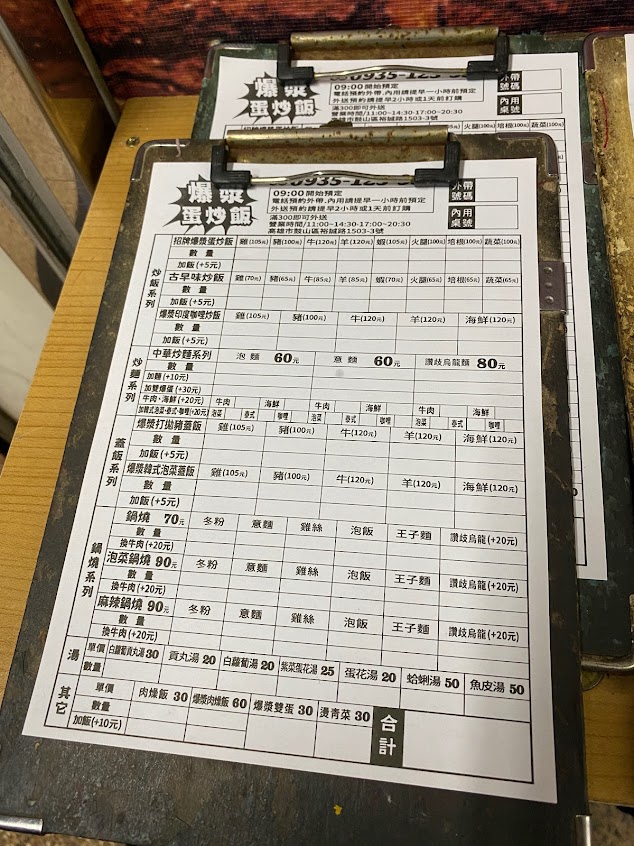 爆漿
蛋炒飯
09:00開始預定
電話預約外帶,內用請提早一小時前預定
外送預約請提早2小時或1天前訂購
滿300即可外送
營業時間/11:00~14:30-17:00~20:30
高雄市鼓山區裕誠路1503-3號
外帶號碼
內用桌號
火腿(100元) 培根(100元) 蔬菜(100元)
爆漿
蛋炒飯
09:00開始預定
電話預約外帶,內用請提早一小時前預定
外送預約請提早2小時或1天前訂購
滿300即可外送
營業時間/11:00~14:30-17:00~20:30
高雄市鼓山區裕誠路1503-3號
外帶號碼
內用桌號
炒飯系列
招牌爆漿蛋炒飯 雞(105元) 豬(100元) 牛(120元) 羊(120元) 蝦(105元) 火腿(100元) 培根(100元) 蔬菜(100元)
數量
加飯(+5元)
古早味炒飯 雞(70元) 豬(65元) 牛(85元) 羊(85元) 蝦(70元) 火腿(65元) 培根(65元) 蔬菜(65元)
數量
加飯(+5元)
爆漿印度咖哩炒飯 雞(105元) 豬(100元) 牛(120元) 羊(120元) 海鮮(120元)
數量
加飯(+5元)
炒麵系列
中華炒麵系列 泡麵 60元 意麵 60元 讚歧烏龍麵 80元
數量
加麵(+10元)
加雙爆蛋(+30元)
牛肉·海鮮(+20元) 牛肉 海鮮 牛肉 海鮮 牛肉 海鮮
加韓式泡菜·泰式·咖哩(+20元) 泡菜 泰式 咖哩 泡菜 泰式 咖哩 泡菜 泰式 咖哩
蓋飯系列
爆漿打拋豬蓋飯 雞(105元) 豬(100元) 牛(120元) 羊(120元) 海鮮(120元)
數量
加飯(+5元)
爆漿韓式泡菜蓋飯 雞(105元) 豬(100元) 牛(120元) 羊(120元) 海鮮(120元)
數量
加飯(+5元)
鍋燒系列
鍋燒 70元 冬粉 意麵 雞絲 泡飯 王子麵 讚歧烏龍(+20元)
數量
換牛肉(+20元)
泡菜鍋燒 90元 冬粉 意麵 雞絲 泡飯 王子麵 讚歧烏龍(+20元)
數量
換牛肉(+20元)
麻辣鍋燒 90元 冬粉 意麵 雞絲 泡飯 王子麵 讚歧烏龍(+20元)
數量
換牛肉(+20元)
湯
單價 白蘿蔔貢丸湯 30 貢丸湯 20 白蘿蔔湯 20 紫菜蛋花湯 25 蛋花湯 20 蛤蜊湯 50 魚皮湯 50
數量
其它
單價 肉燥飯 30 爆漿肉燥飯 60 爆漿雙蛋 30 燙青菜 30 合計
數量
加飯(+10元)